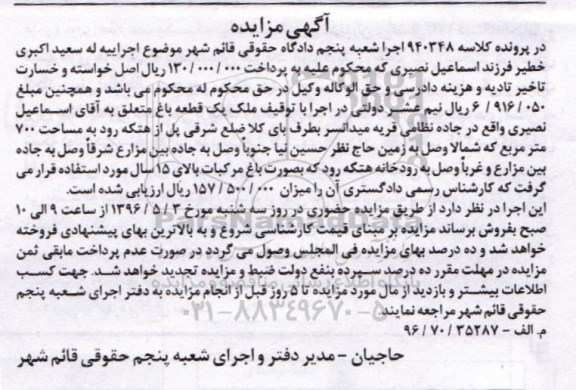 آگهی مزایده
در پرونده کلاسه ۹۴۰۳۴۸ اجرا شعبه پنجم دادگاه حقوقی قائم شهر موضوع اجراییه له سعید اکبری
خطیر فرزند اسماعیل نصیری که محکوم علیه به پرداخت ۱۳۰/۰۰۰/۰۰۰ ریال اصل خواسته و خسارت
تاخیر تادیه و هزینه دادرسی و حق الوکاله وکیل در حق محکوم له محکوم می باشد و همچنین مبلغ
۶/۹۱۶/۰۵۰ ریال نیم عشر دولتی در اجرا با توقیف ملک یک قطعه باغ متعلق به آقای اسماعیل
نصیری واقع در جاده نظامی قریه میدانسر بطرف بای کلا ضلع شرقی پل از هتکه رود به مساحت ۷۰۰
متر مربع که شمالا وصل به زمین حاج نظر حسین نیا جنوباً وصل به جاده بین مزارع شرقاً وصل به جاده
بین مزارع و غرباً وصل به رودخانه هتکه رود که بصورت باغ مرکبات بالای ۱۵ سال مورد استفاده قرار می
گرفت که کارشناس رسمی دادگستری آن را میزان ۱۵۷/۵۰۰/۰۰۰ ریال ارزیابی شده است.
این اجرا در نظر دارد از طریق مزایده حضوری در روز سه شنبه مورخ ۱۳۹۶/۵/۳ از ساعت ۹ الی ۱۰
صبح بفروش برساند مزایده بر مبنای قیمت کارشناسی شروع و به بالاترین بهای پیشنهادی فروخته
خواهد شد و ده درصد بهای مزایده فی المجلس وصول می گردد در صورت عدم پرداخت مابقی ثمن
مزایده در مهلت مقرر ده درصد سپرده بنفع دولت ضبط و مزایده تجدید خواهد شد. جهت کسب
اطلاعات بیشتر و بازدید از مال مورد مزایده تا ۵ روز قبل از انجام مزایده به دفتر اجرای شعبه پنجم
حقوقی قائم شهر مراجعه نمایند.
م. الف - ۹۶/۷۰/۳۵۲۸۷
حاجیان - مدیر دفتر و اجرای شعبه پنجم حقوقی قائم شهر
۰۲۱-۸۸۳۴۹۶۷۰-۵